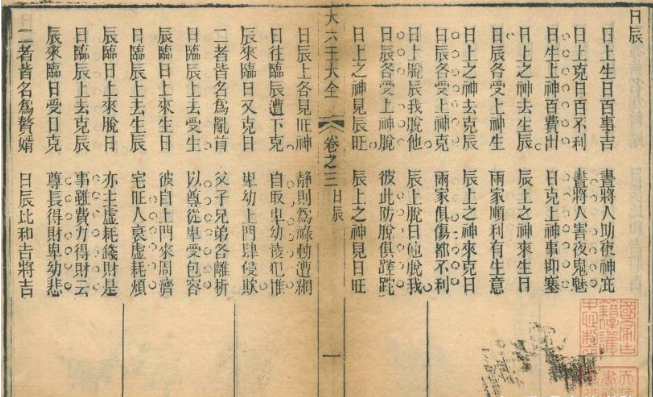 日辰
日上生日百事吉 晝將人助夜神庇
日上克日百不利 晝將人害夜鬼魅
日生上神百費出 日克上神事抑塞
日上之神去生辰 辰上之神來生日
日辰各受上神生 兩家順利有生意
日上之神去克辰 辰上之神來克日
日辰各受上神克 兩家俱傷都不利
日上脫辰我脫他 辰上脫日他脫我
日辰各受上神脫 彼此防脫俱蹉跎
日上之神見辰旺 辰上之神見日旺
大六壬大全 卷之三 日辰 一
日辰上各見旺神 靜則爲祿動遭網
日往臨辰遭下克 自取卑幼凌犯惟
辰來臨日又克日 卑幼上門肆侵欺
二者皆名爲亂首 父子兄弟各離析
日臨辰上去受生 以尊從卑受包容
辰臨日上來生日 彼自上門來周濟
日臨辰上去生辰 宅旺人衰虛耗頻
辰臨日上來脫日 亦主虛耗錢財是
日臨辰上去克辰 事雖費力得財云
辰來臨日受日克 尊長得財卑幼悲
二者皆名爲贅婿 日辰比和吉將吉